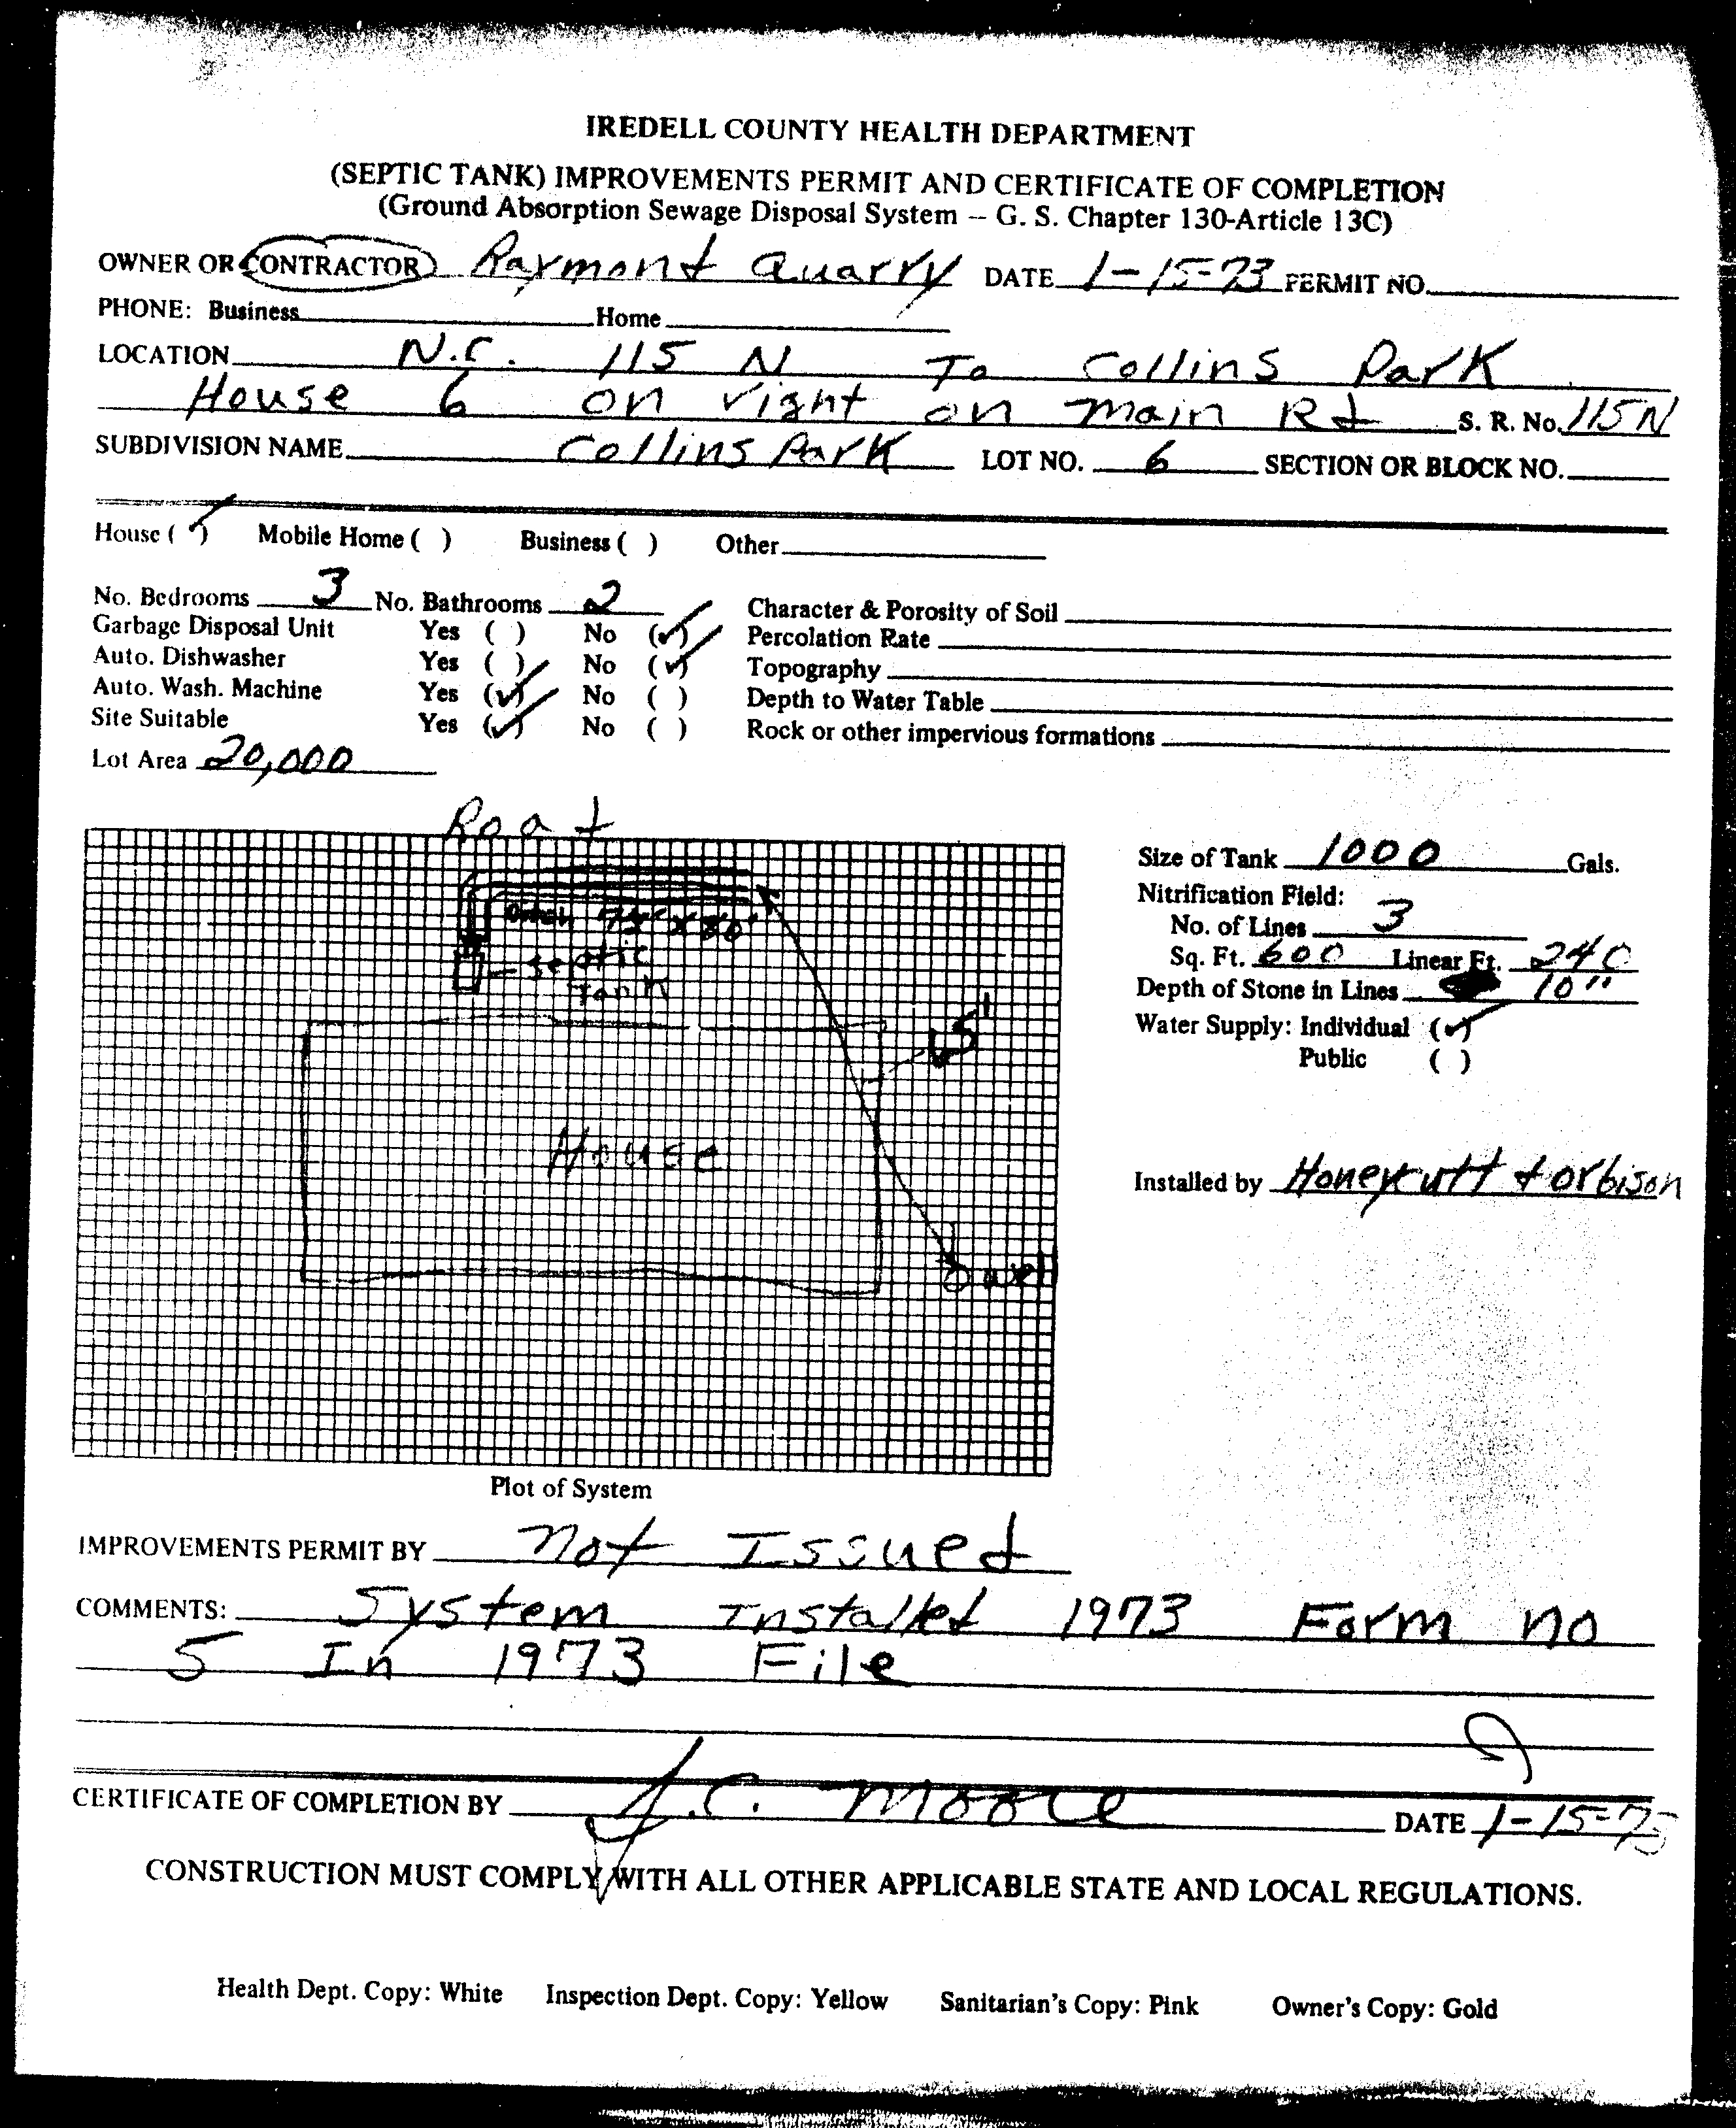 IREDELL COUNTY HEALTH DEPARTMENT
(SEPTIC TANK) IMPROVEMENTS PERMIT AND CERTIFICATE OF COMPLETION
(Ground Absorption Sewage Disposal System – G. S. Chapter 130-Article 13C)
OWNER OR CONTRACTOR Raymond Quarry DATE 1-15-73 PERMIT NO.
PHONE: Business Home
LOCATION N.C. 115 N To Collins Park
House 6 on right on main Rd S. R. No. 115 N
SUBDIVISION NAME Collins Park LOT NO. 6 SECTION OR BLOCK NO.
House (✓) Mobile Home ( ) Business ( ) Other
No. Bedrooms 3 No. Bathrooms 2 Character & Porosity of Soil
Garbage Disposal Unit Yes ( ) No (✓) Percolation Rate
Auto. Dishwasher Yes ( ) No (✓) Topography
Auto. Wash. Machine Yes (✓) No ( ) Depth to Water Table
Site Suitable Yes (✓) No ( ) Rock or other impervious formations
Lot Area 20,000
Road
Size of Tank 1000 Gals.
Nitrification Field:
No. of Lines 3
Sq. Ft. 600 Linear Ft. 240
Depth of Stone in Lines 10"
Water Supply: Individual (✓)
Public ( )
x 80'
septic
Tank
House
well
Installed by Honeycutt + Orbison
Plot of System
IMPROVEMENTS PERMIT BY not Issued
COMMENTS: System Installed 1973 Form no
5 In 1973 File
CERTIFICATE OF COMPLETION BY J.C. Moore DATE 1-15-73
CONSTRUCTION MUST COMPLY WITH ALL OTHER APPLICABLE STATE AND LOCAL REGULATIONS.
Health Dept. Copy: White Inspection Dept. Copy: Yellow Sanitarian's Copy: Pink Owner's Copy: Gold